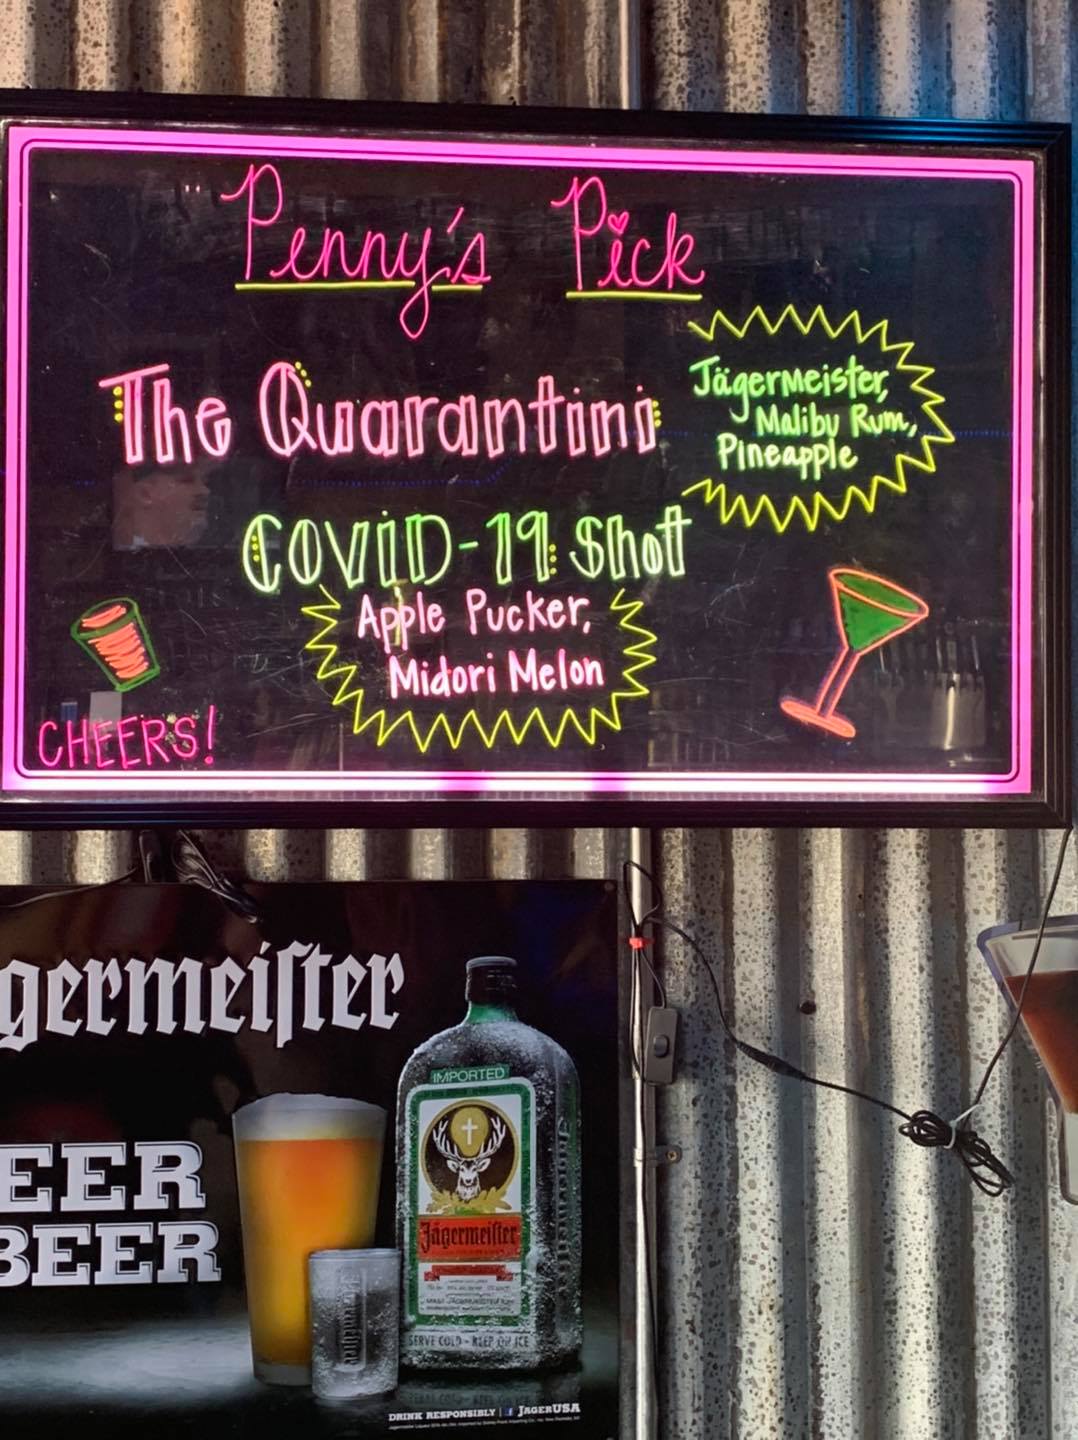 Penny's Pick
The Quarantini
Jägermeister,
Malibu Rum,
Pineapple
COVID-19 Shot
Apple Pucker,
Midori Melon
CHEERS!
germeister
EER
BEER
IMPORTED
Jägermeister
SERVE COLD - KEEP ON ICE
DRINK RESPONSIBLY | f JAGERUSA